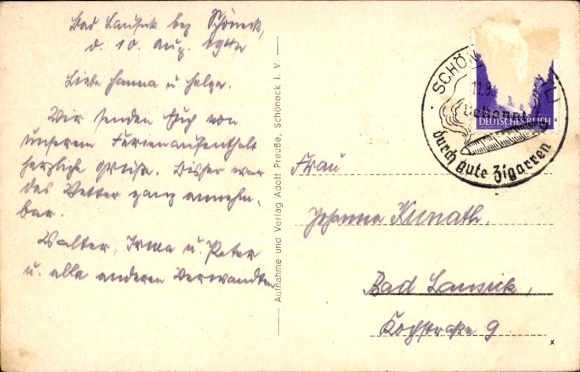 Bad Lausick bez Schöneck,
d. 10. Aug. 1942
Liebe Hanna u. Helga.
Wir senden Euch von
unserem Ferienaufenthalt
herzliche Grüße. Bisher war
das Wetter ganz annehm-
bar.
Walter, Irma u. Peter
u. alle anderen Verwandten
Aufnahme und Verlag Adolf Preuße, Schöneck i. V.
SCHÖN
11.8.
DEUTSCHES REICH
durch gute Zigarren
Frau
Johanne Kunath,
Bad Lausick,
Kochstraße 9
x